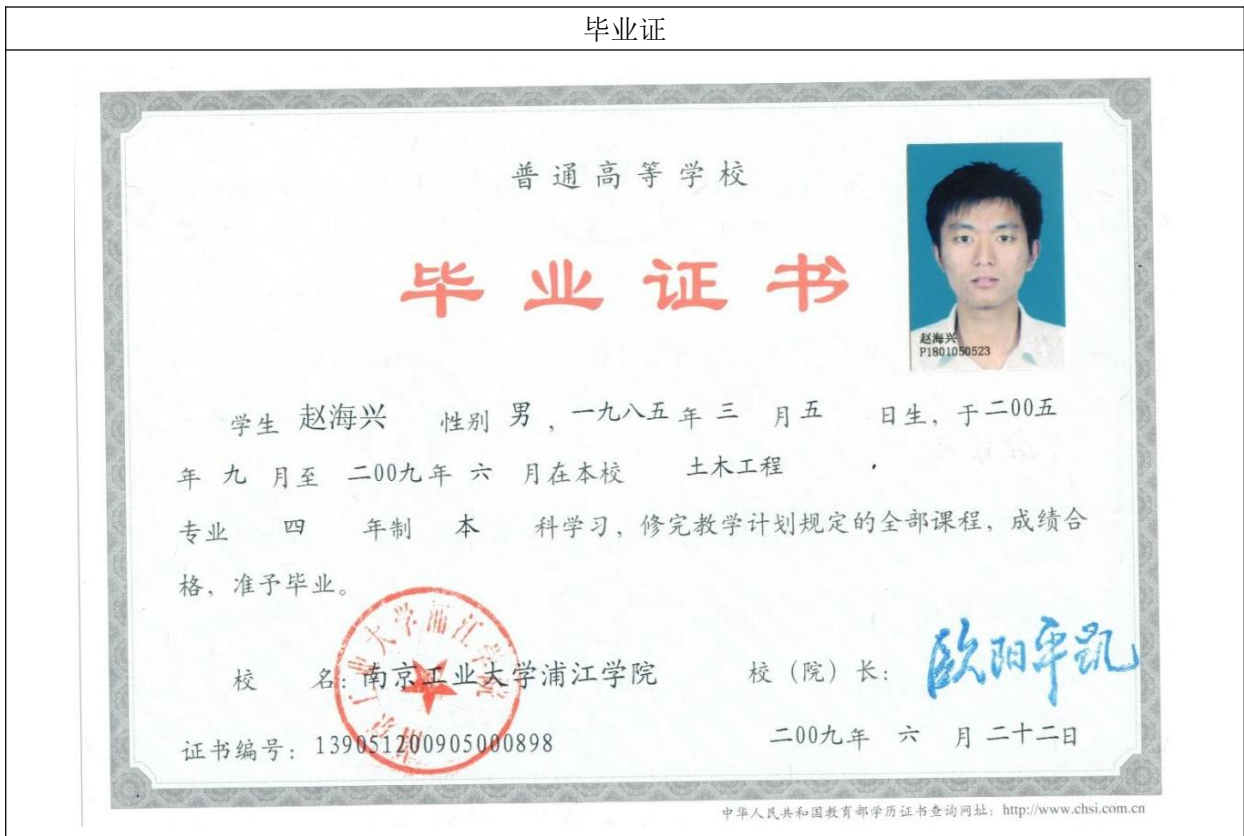 毕业证
普通高等学校
毕业证书
赵海兴
P1801050523
学生 赵海兴 性别 男 , 一九八五 年 三 月 五 日生, 于 二00五
年 九 月至 二00九 年 六 月在本校 土木工程
专业 四 年制 本 科学习, 修完教学计划规定的全部课程, 成绩合
格, 准予毕业。
南京工业大学浦江学院
校 名: 南京工业大学浦江学院 校（院）长: 欧阳平凯
证书编号: 139051200905000898 二00九年 六 月 二十二日
中华人民共和国教育部学历证书查询网址: http://www.chsi.com.cn